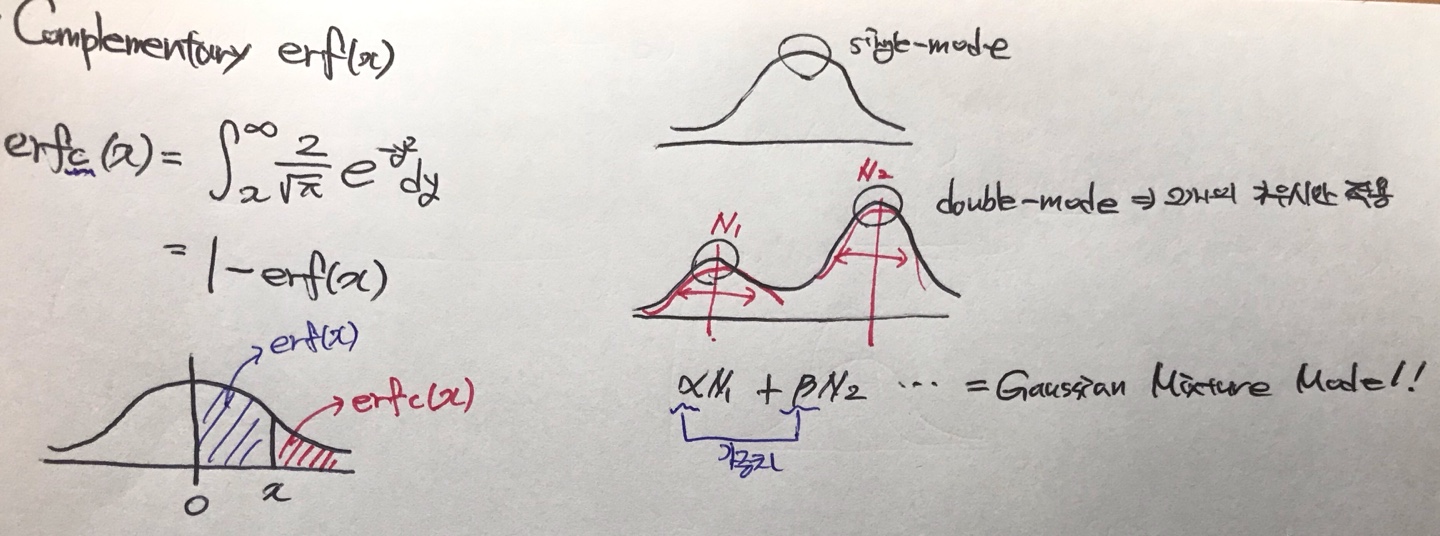 Complementary erf(x)
erfc(x) = ∫ₓ^∞ 2/√π e^(-y²) dy
= 1 - erf(x)
erf(x)
erfc(x)
0 x
single-mode
N₁ N₂
double-mode ⇒ 2개의 가우시안 적용
αN₁ + βN₂ ⋯ = Gaussian Mixture Model!!
가중치